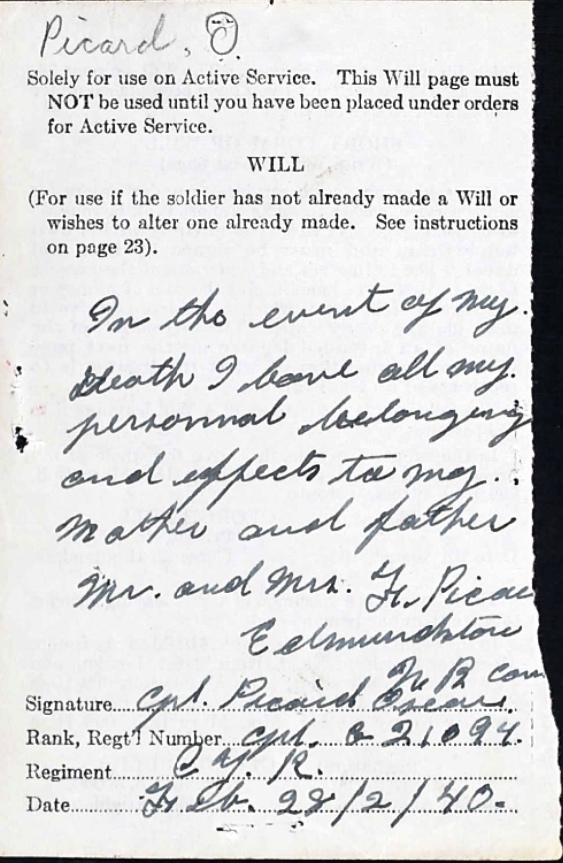 Picard, O
Solely for use on Active Service. This Will page must
NOT be used until you have been placed under orders
for Active Service.
WILL
(For use if the soldier has not already made a Will or
wishes to alter one already made. See instructions
on page 23).
In the event of my.
death I leave all my.
personnal belonging
and effects to my.
Mother and father
Mr. and Mrs. F. Picar
Edmundston
N B Can
Signature....Cpl. Picard Oscar.
Rank, Regt'l Number Cpl. G 21094
Regiment C.Y.R.
Date....Feb. 28/2/40.